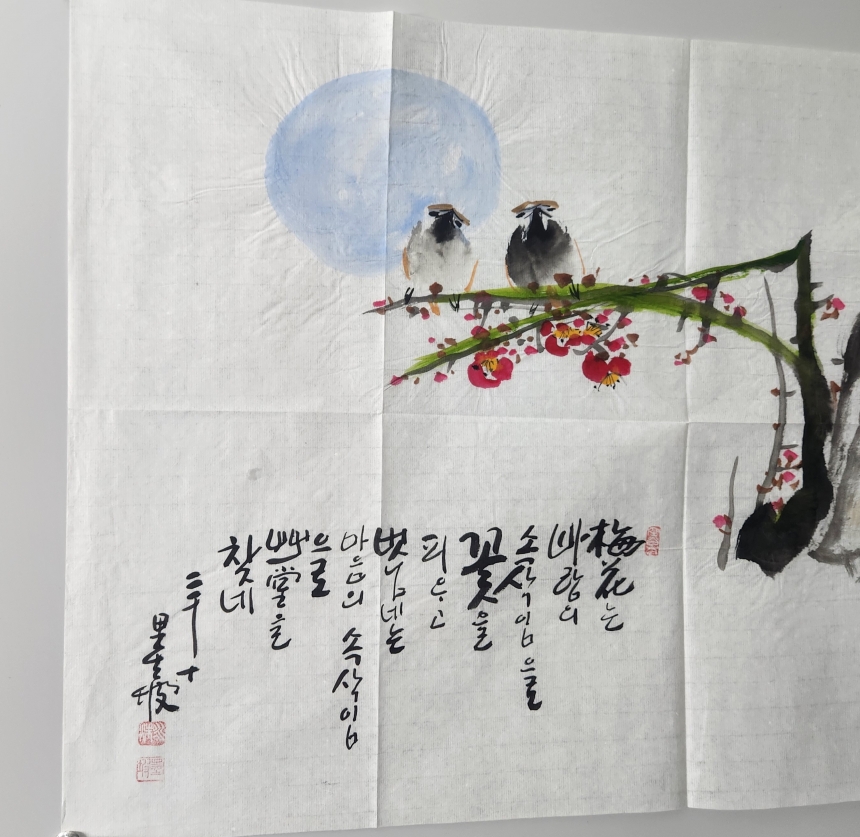 梅花는
바람의
속삭임으로
꽃을
피우고
벗님네는
마음의 속삭임
으로
艸堂을
찾네
二千十